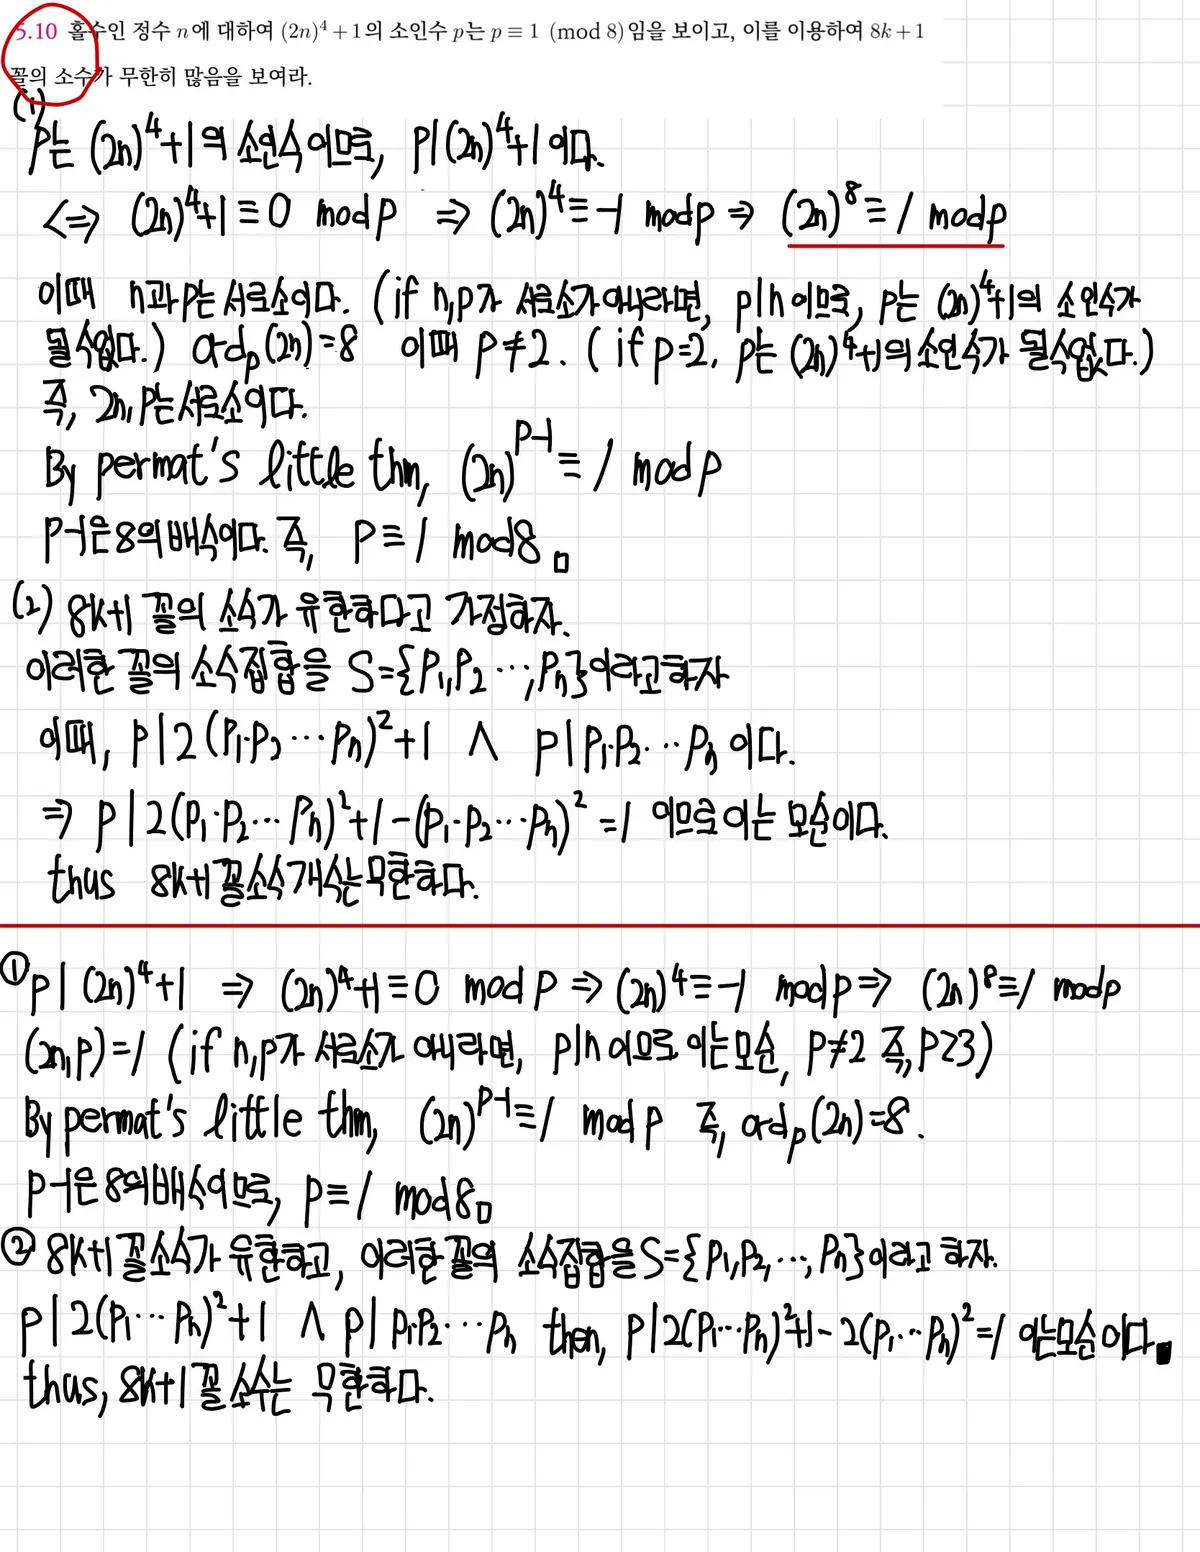 5.10 홀수인 정수 n에 대하여 (2n)⁴+1의 소인수 p는 p ≡ 1 (mod 8)임을 보이고, 이를 이용하여 8k+1
꼴의 소수가 무한히 많음을 보여라.
(1)
P는 (2n)⁴+1의 소인수이므로, P|(2n)⁴+1이다.
<=> (2n)⁴+1≡0 mod p ⇒ (2n)⁴≡-1 mod p ⇒ (2n)⁸≡1 mod p
이때 n과 p는 서로소이다. (if n,p가 서로소가 아니라면, p|n이므로, p는 (2n)⁴+1의 소인수가
될수없다.) ord_p(2n)=8 이때 P≠2. (if p=2, p는 (2n)⁴+1의 소인수가 될수없다.)
즉, 2n, p는 서로소이다.
By permat's little thm, (2n)^(p-1)≡1 mod p
P-1은 8의 배수이다. 즉, P≡1 mod 8 □
(2) 8k+1 꼴의 소수가 유한하다고 가정하자.
이러한 꼴의 소수집합을 S={P₁,P₂ ⋯, Pₙ}이라고하자
이때, P|2(P₁·P₂ ⋯ Pₙ)²+1 ∧ P|P₁·P₂⋯Pₙ 이다.
⇒ P|2(P₁·P₂⋯Pₙ)²+1-(P₁·P₂⋯Pₙ)²=1 이므로 이는 모순이다.
thus 8k+1꼴소수개수는무한하다.
① P|(2n)⁴+1 ⇒ (2n)⁴+1≡0 mod p ⇒ (2n)⁴≡-1 mod p ⇒ (2n)⁸≡1 mod p
(2n,p)=1 (if n,p가 서로소가 아니라면, p|n이므로 이는모순, P≠2 즉, P≥3)
By permat's little thm, (2n)^(p-1)≡1 mod p 즉, ord_p(2n)=8.
P-1은 8의배수이므로, P≡1 mod 8 □
② 8k+1꼴소수가 유한하고, 이러한꼴의 소수집합을 S={P₁,P₂, ⋯, Pₙ}이라고 하자.
P|2(P₁⋯Pₙ)²+1 ∧ P|P₁·P₂⋯Pₙ then, P|2(P₁⋯Pₙ)²+1-2(P₁⋯Pₙ)²=1 이는모순이다. ■
thus, 8k+1꼴 소수는 무한하다.